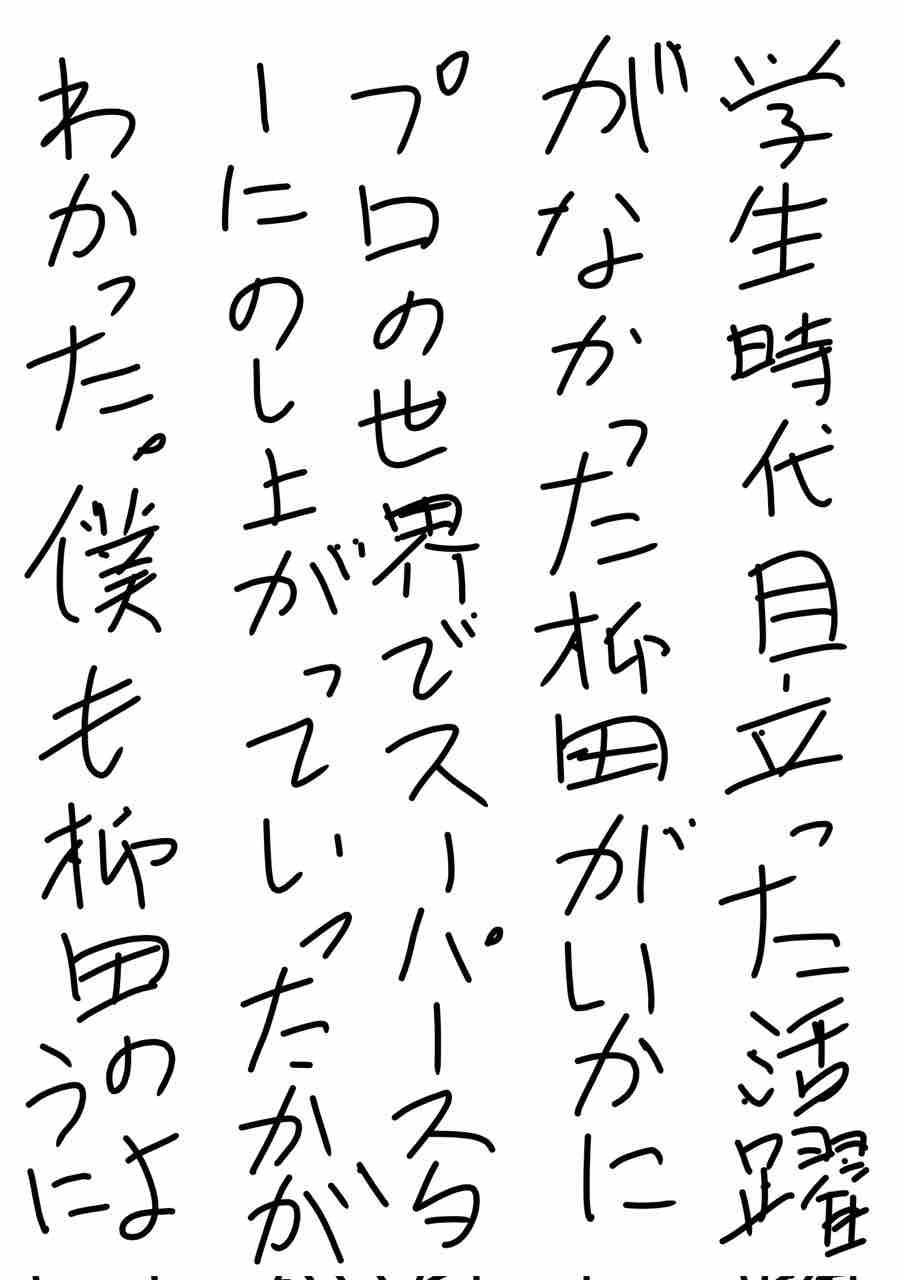 学生時代目立った活躍
がなかった柳田がいかに
プロの世界でスーパースタ
ーにのし上がっていったかが
わかった。僕も柳田のように